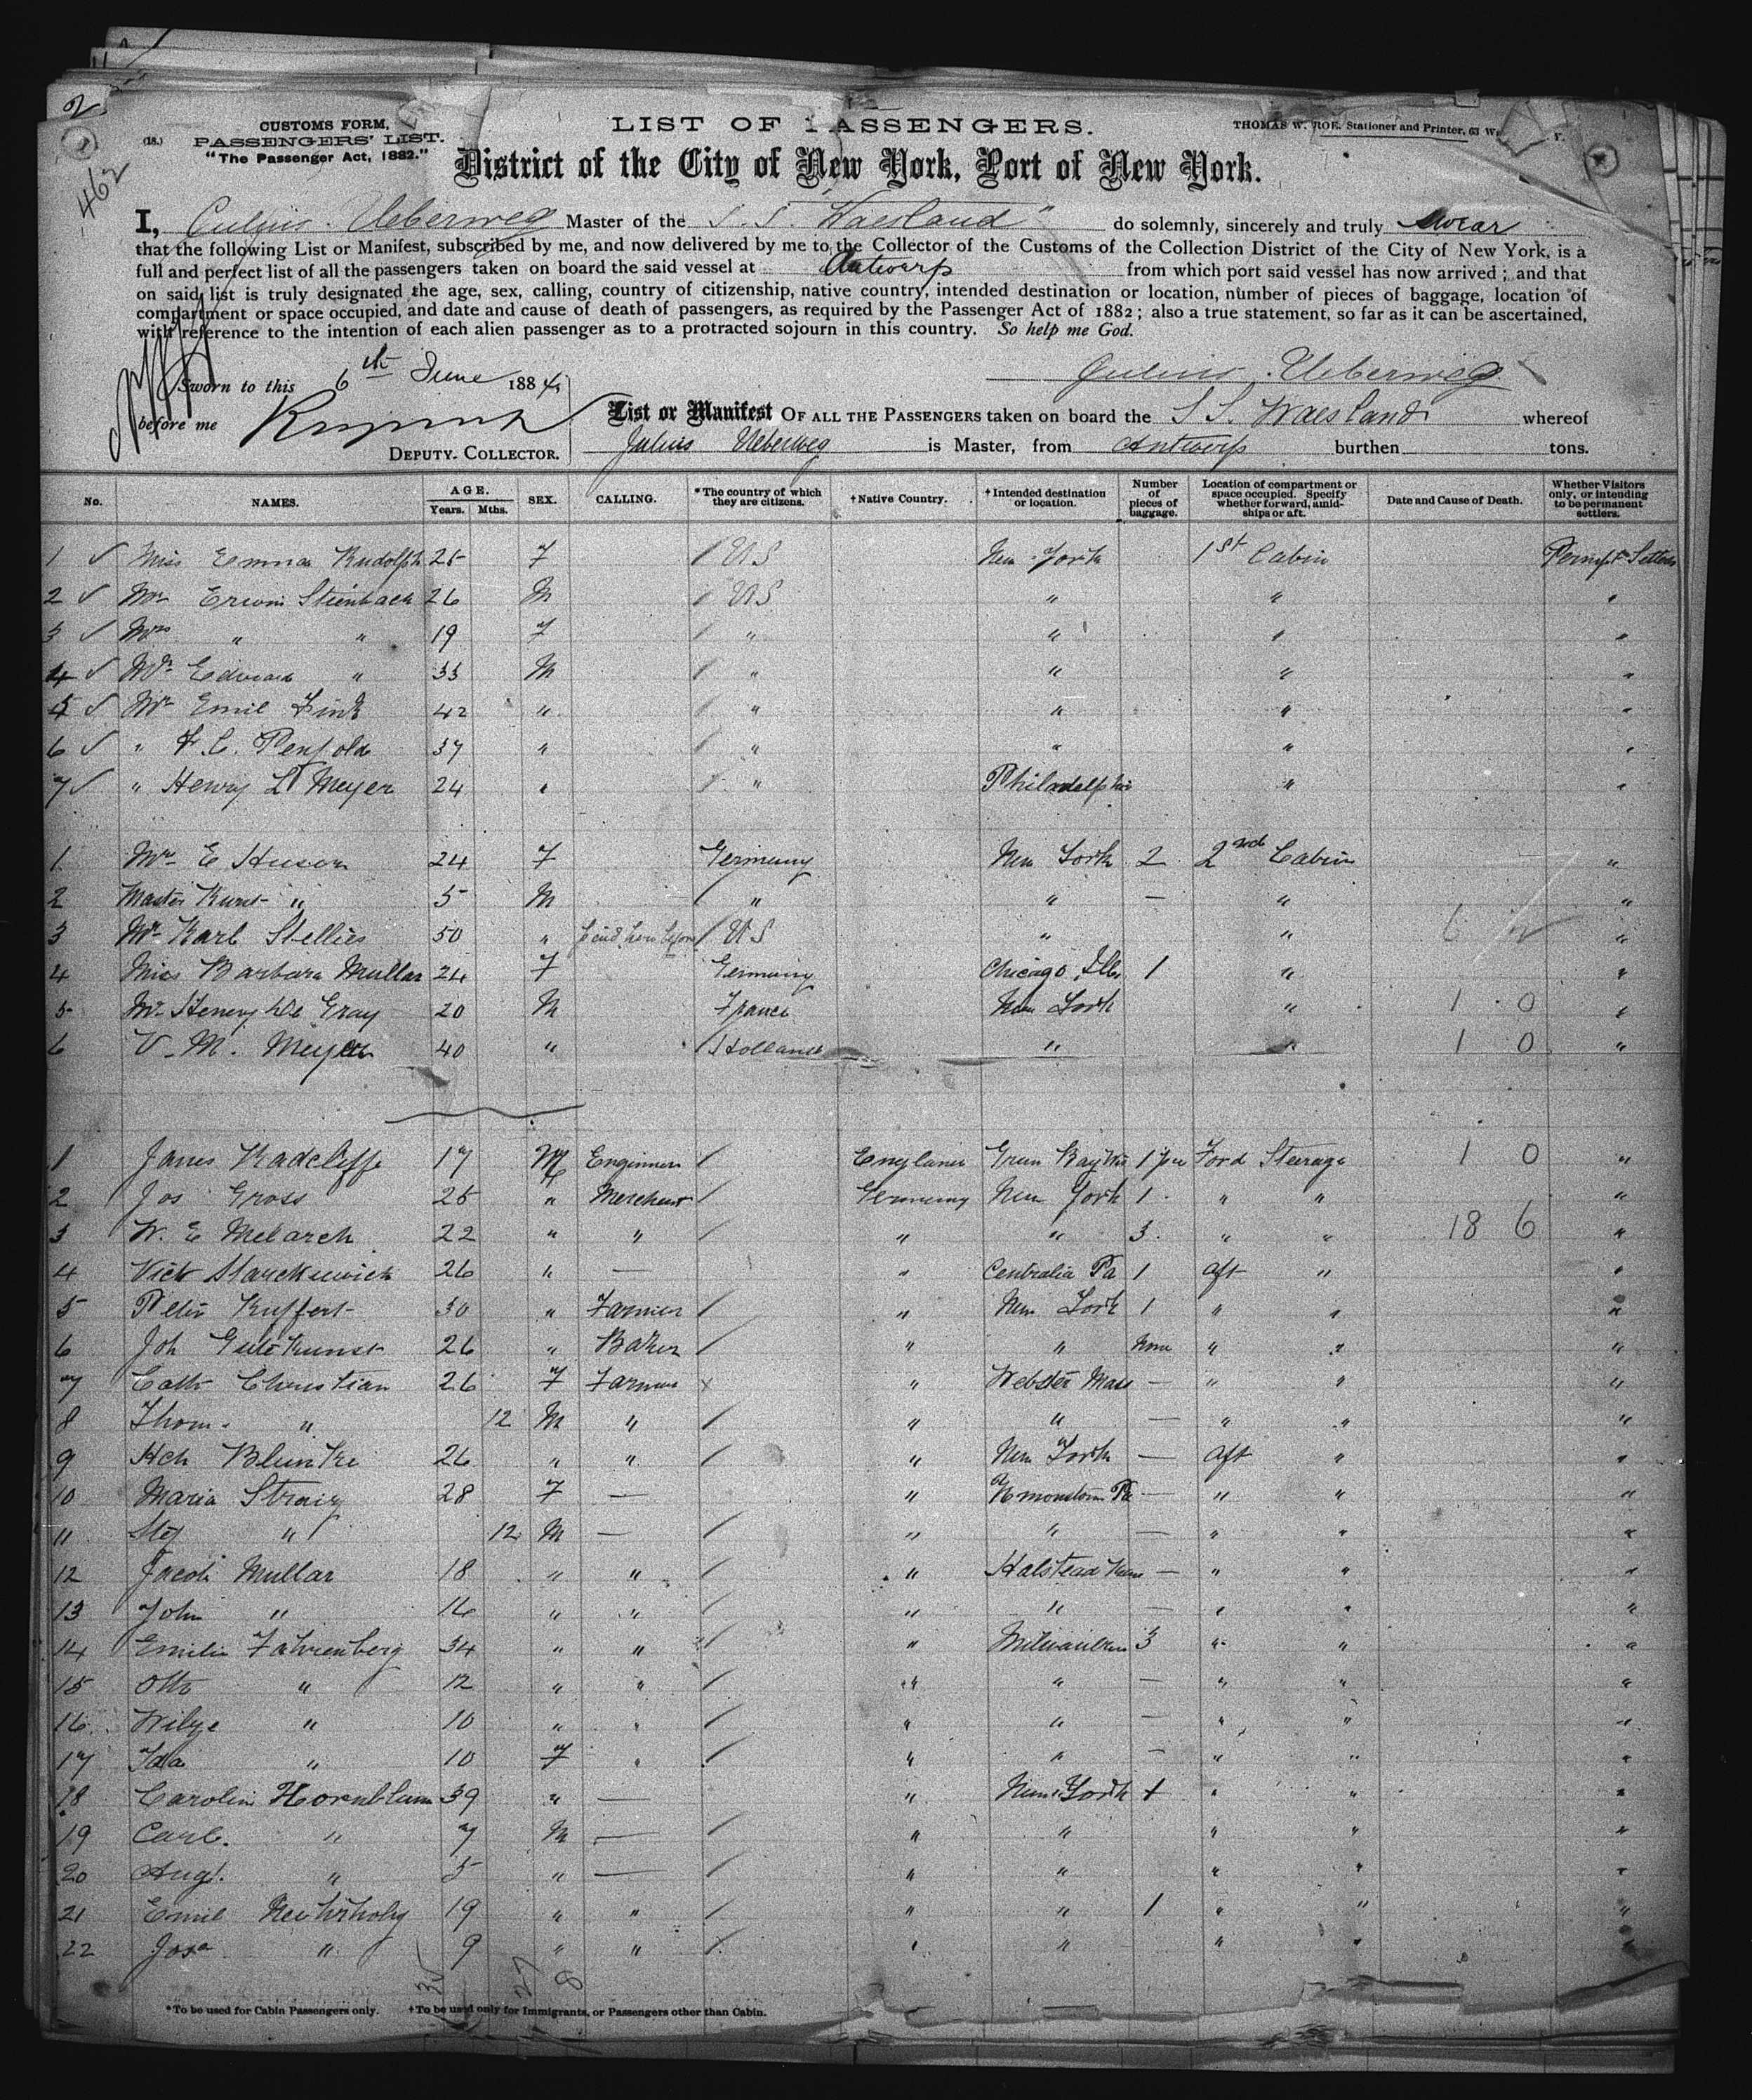 2
462
CUSTOMS FORM,
(18.) PASSENGERS' LIST.
"The Passenger Act, 1882."
LIST OF PASSENGERS.
THOMAS W. ROE, Stationer and Printer, 63
District of the City of New York, Port of New York.
I, Julius Ueberweg Master of the S. S. Waesland" do solemnly, sincerely and truly swear
that the following List or Manifest, subscribed by me, and now delivered by me to the Collector of the Customs of the Collection District of the City of New York, is a
full and perfect list of all the passengers taken on board the said vessel at Antwerp from which port said vessel has now arrived; and that
on said list is truly designated the age, sex, calling, country of citizenship, native country, intended destination or location, number of pieces of baggage, location of
compartment or space occupied, and date and cause of death of passengers, as required by the Passenger Act of 1882; also a true statement, so far as it can be ascertained,
with reference to the intention of each alien passenger as to a protracted sojourn in this country. So help me God.
Julius Ueberweg
Sworn to this 6th June 1884
before me
DEPUTY COLLECTOR.
List or Manifest OF ALL THE PASSENGERS taken on board the S S. Waesland whereof
Julius Ueberweg is Master, from Antwerp burthen tons.
No. NAMES. AGE. Years. Mths. SEX. CALLING. *The country of which they are citizens. †Native Country. †Intended destination or location. Number of pieces of baggage. Location of compartment or space occupied. Specify whether forward, amidships or aft. Date and Cause of Death. Whether Visitors only, or intending to be permanent settlers.
1 ✓ Miss Emma Rudolph 25 F / US New York 1st Cabin
2 ✓ Mr Erwin Steinbach 26 M / US " " "
3 ✓ Mrs " " 19 F / " " " "
4 ✓ Mr Edward " 33 M / " " " "
5 ✓ Mr Emil Fink 42 " / " " " "
6 ✓ " F. C. Penfold 37 " / " " " "
7 ✓ " Henry L Meyer 24 " / " Philadelphia " "
1 E Huson 24 F Germany New York 2 2nd Cabin "
2 Master Kurt " 5 M / " " — " "
3 Mr Karl Stellies 50 " / US " " "
4 Miss Barbara Mullar 24 F Germany Chicago Ills 1 " "
5 Mr Henry De Gray 20 M France New York " 1 0 "
6 V. M. Meyer 40 " / Holland " " 1 0 "
1 James Radcliffe 17 M Engineer / England Green Bay Wis 1 Ford Steerage 1 0 "
2 Jos Gross 25 " Merchant / Germany New York 1 " " "
3 W. E Melarch 22 " " / " " 3 " " 18 6 "
4 Vict 26 " — " Centralia Pa 1 Aft " "
5 Peter Kuffert 30 " Farmer / " New York 1 " " "
6 Joh Gutekunst 26 " Baker / " " None " " "
7 Cath Christian 26 F Farmer x " Webster Mass — " " "
8 Thom. " 12 M " / " " — " " "
9 Hch Blunke 26 " " / " New York — Aft " "
10 Maria 28 F — " Pa — " " "
11 " 12 M — / " " — " " "
12 Jacob Mullar 18 " " / " Halstead Kans — " " "
13 John " 16 " " / " " — " " "
14 Emilie Fahrenberg 34 " " / " Milwaukee 3 " " "
15 Otto " 12 " " / " " — " " "
16 " 10 " " / " " — " " "
17 Ida " 10 F " / " " — " " "
18 Carolin Hornblum 39 " — " New York 1 " " "
19 Carl. " 7 M — / " " " " "
20 Aug. " 5 " — / " " " " "
21 Emil 19 " " / " " 1 " " "
22 " 9 " " / " " " " "
*To be used for Cabin Passengers only. †To be used only for Immigrants, or Passengers other than Cabin.